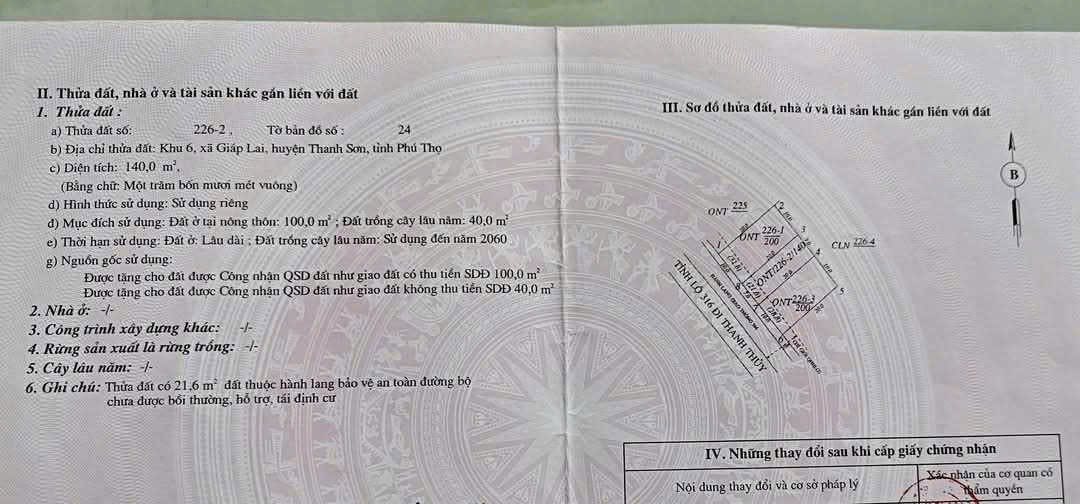 II. Thửa đất, nhà ở và tài sản khác gắn liền với đất
1. Thửa đất :
a) Thửa đất số: 226-2 , Tờ bản đồ số : 24
b) Địa chỉ thửa đất: Khu 6, xã Giáp Lai, huyện Thanh Sơn, tỉnh Phú Thọ
c) Diện tích: 140,0 m²,
(Bằng chữ: Một trăm bốn mươi mét vuông)
d) Hình thức sử dụng: Sử dụng riêng
đ) Mục đích sử dụng: Đất ở tại nông thôn: 100,0 m² ; Đất trồng cây lâu năm: 40,0 m²
e) Thời hạn sử dụng: Đất ở: Lâu dài ; Đất trồng cây lâu năm: Sử dụng đến năm 2060
g) Nguồn gốc sử dụng:
Được tặng cho đất được Công nhận QSD đất như giao đất có thu tiền SDĐ 100,0 m²
Được tặng cho đất được Công nhận QSD đất như giao đất không thu tiền SDĐ 40,0 m²
2. Nhà ở: -/-
3. Công trình xây dựng khác: -/-
4. Rừng sản xuất là rừng trồng: -/-
5. Cây lâu năm: -/-
6. Ghi chú: Thửa đất có 21,6 m² đất thuộc hành lang bảo vệ an toàn đường bộ
chưa được bồi thường, hỗ trợ, tái định cư
III. Sơ đồ thửa đất, nhà ở và tài sản khác gắn liền với đất
B
ONT 225
2
3
1
ONT 226-1
200
4
CLN 226-4
ONT/226-2/140
5
ONT 226-3
200
TỈNH LỘ 316 ĐI THANH THỦY
IV. Những thay đổi sau khi cấp giấy chứng nhận
Nội dung thay đổi và cơ sở pháp lý
Xác nhận của cơ quan có
thẩm quyền